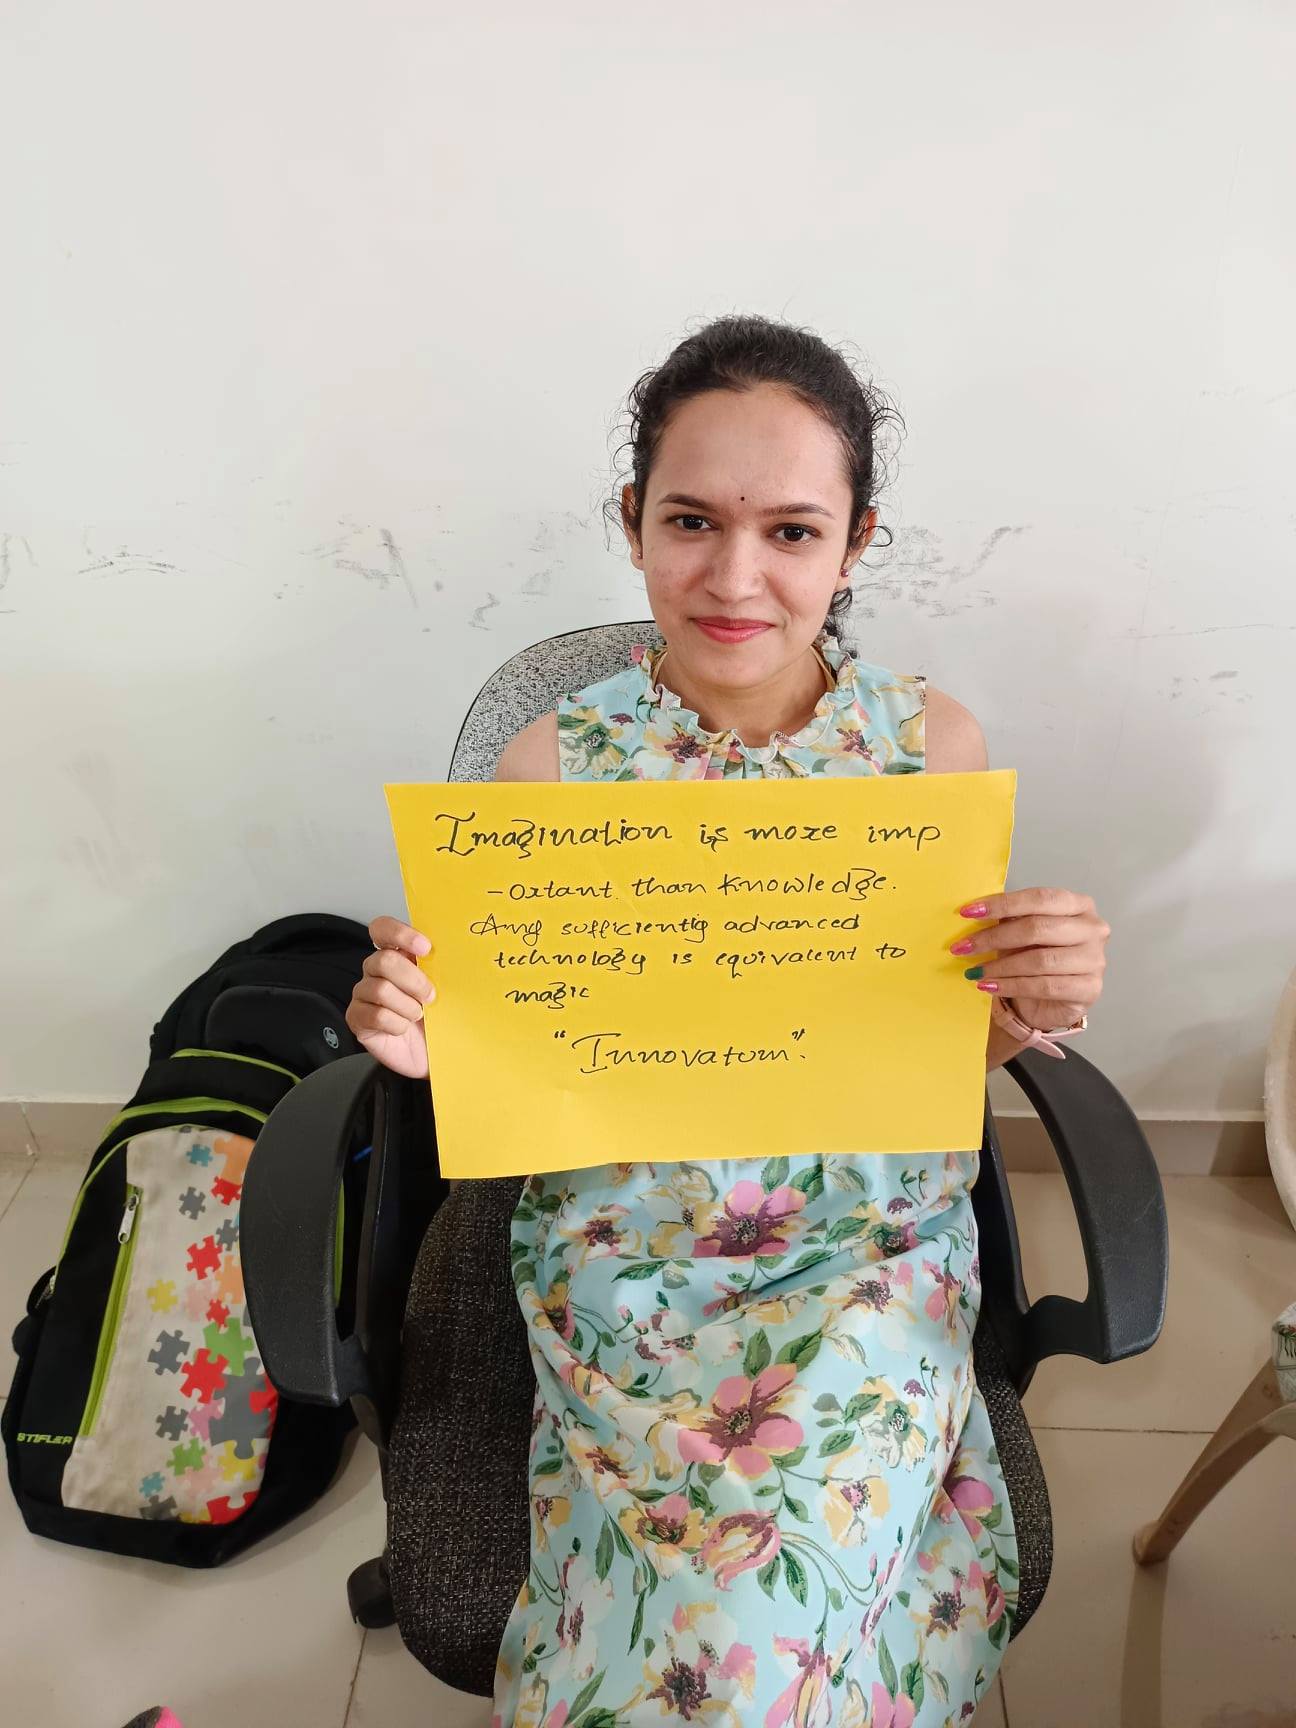 Imagination is more imp
-ortant than knowledge.
Any sufficiently advanced
technology is equivalent to
magic
"Innovatom".
STIFLER
hp